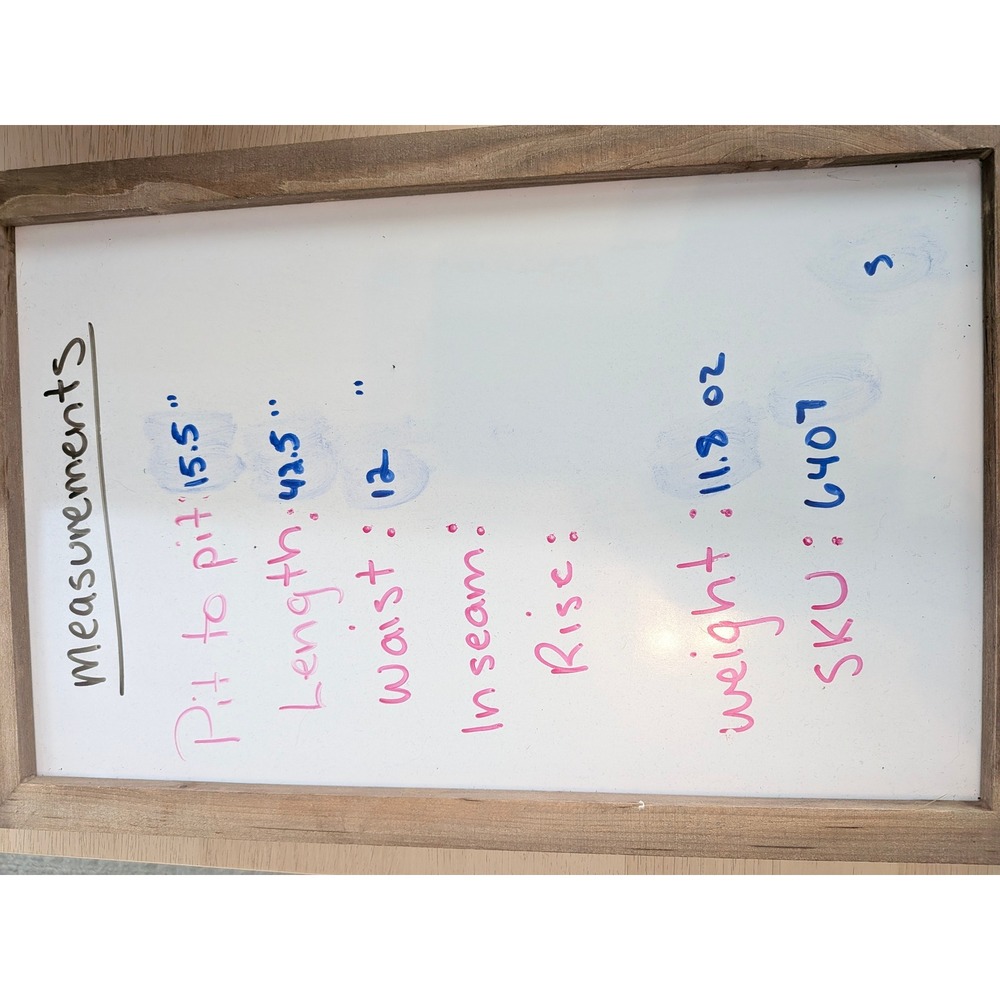 Measurements
Pit to pit: 15.5"
Length: 42.5"
Waist: 12"
Inseam:
Rise:
Weight: 11.8 oz
SKU: 6407
S